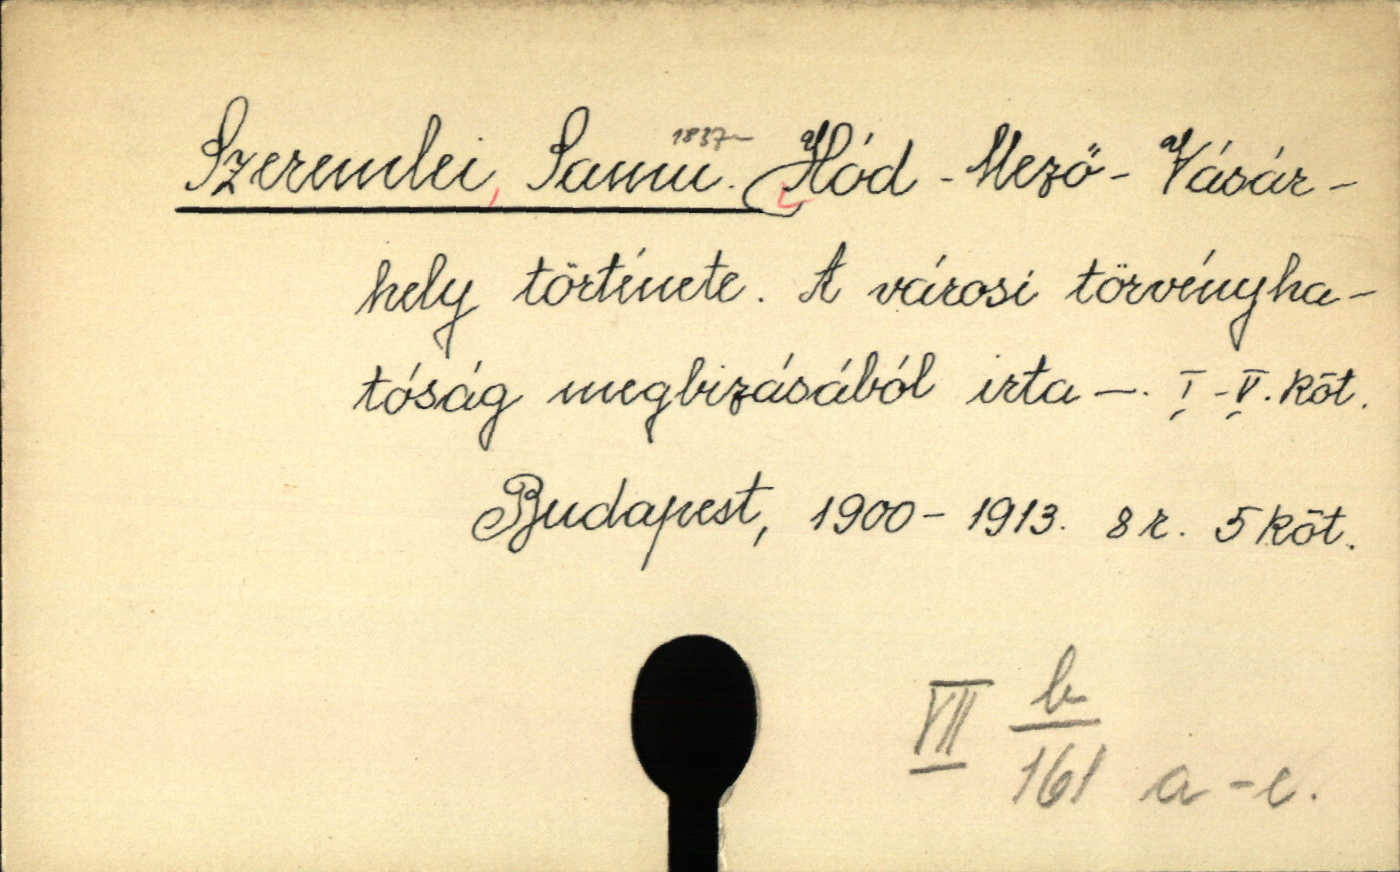 Szeremlei, Samu. 1837- Hód-Mező-Vásár-
hely története. A városi törvényha-
tóság megbizásából irta —. I-V. köt.
Budapest, 1900-1913. 8 r. 5 köt.
VII b
161 a-e.